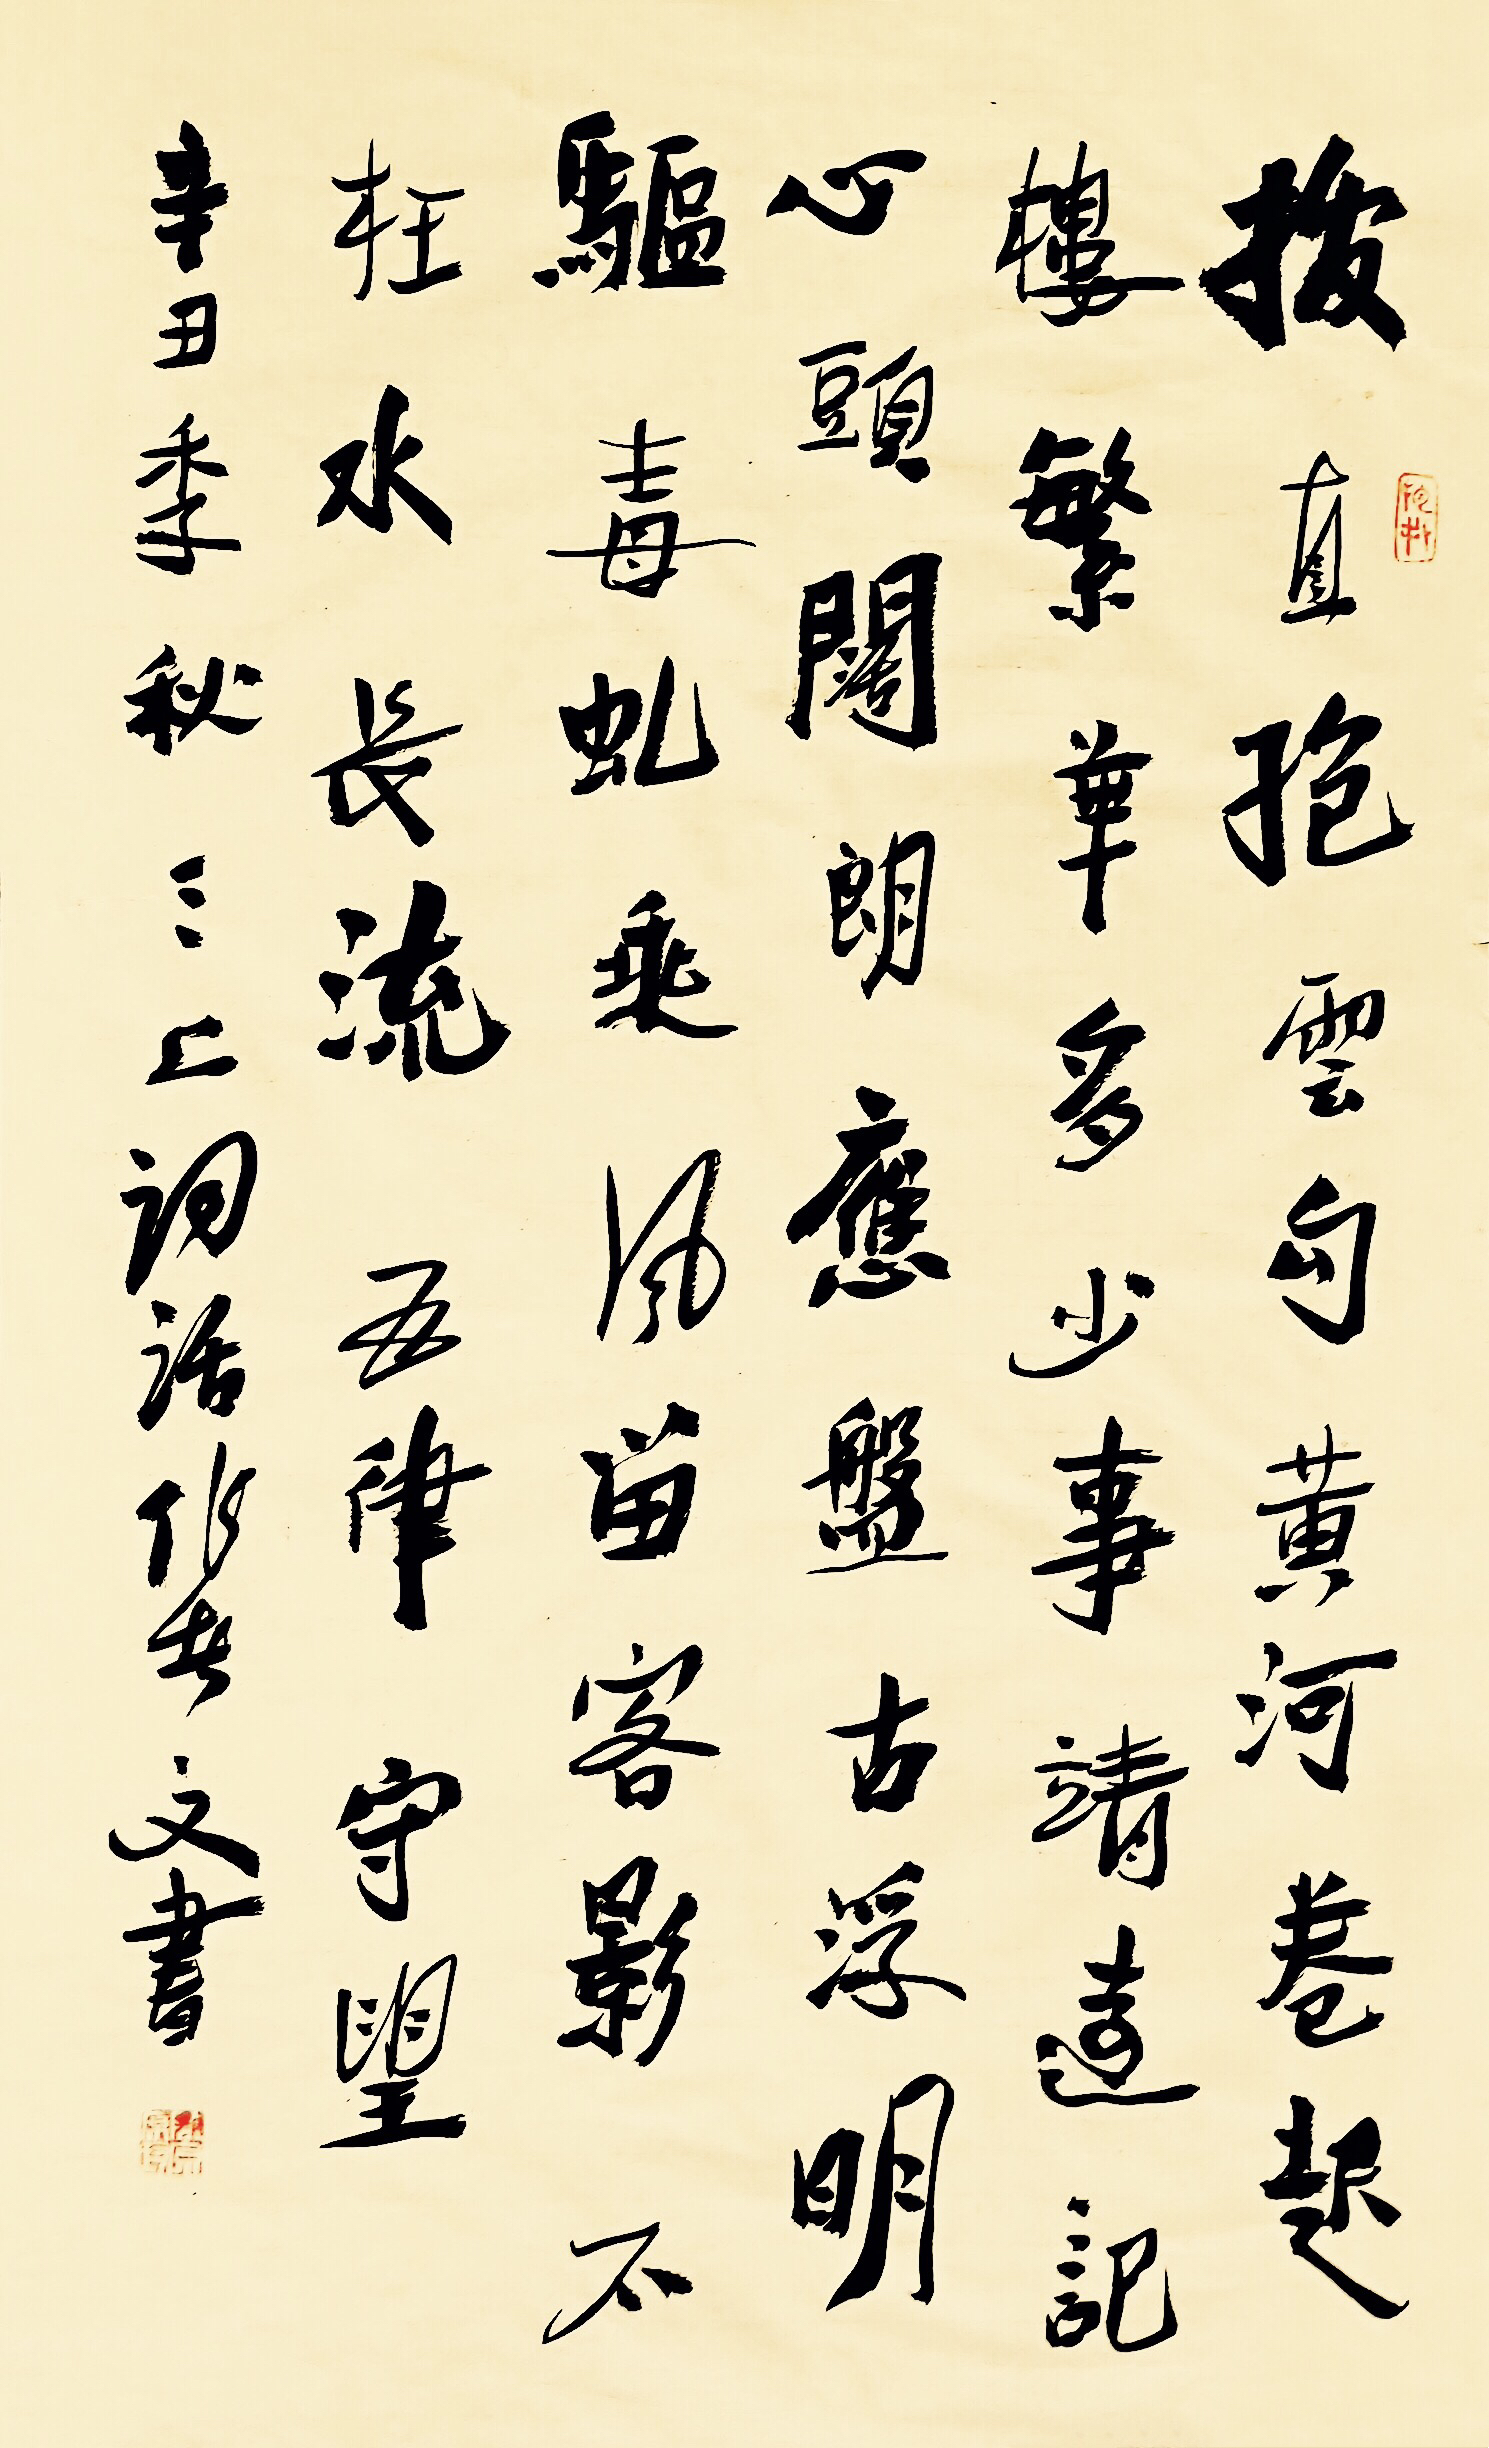 拔直抱雲勾黄河卷起
樓繁華多少事靖遠記
心頭闊朗應盤古浮明
驅毒虬乘風留客影不
枉水長流 五律 守望
辛丑季秋三上詞話作者文書
抱朴